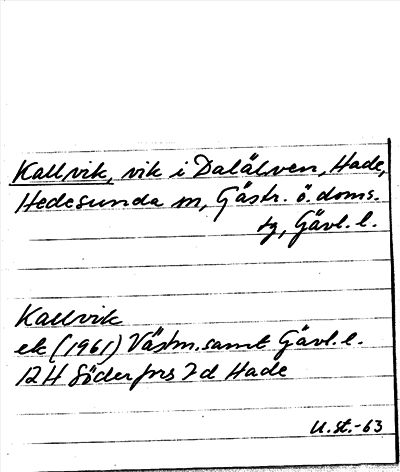 Kallvik, vik i Dalälven, Hade,
Hedesunda sn, Gästr. ö. doms.
tg, Gävl. l.
Kallvik
ek (1961) Västm. samt Gävl. l.
12H Söderfors 7d Hade
U.st.-63